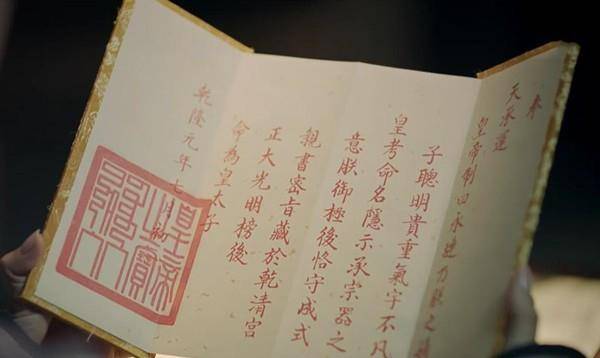 奉
天承運
皇帝制曰永
子聰明貴重氣宇不凡
皇考命名隱示承宗器之
意朕御極後恪守成式
親書密旨藏於乾清宮
正大光明榜後
命為皇太子
乾隆元年七月初
皇帝之寶